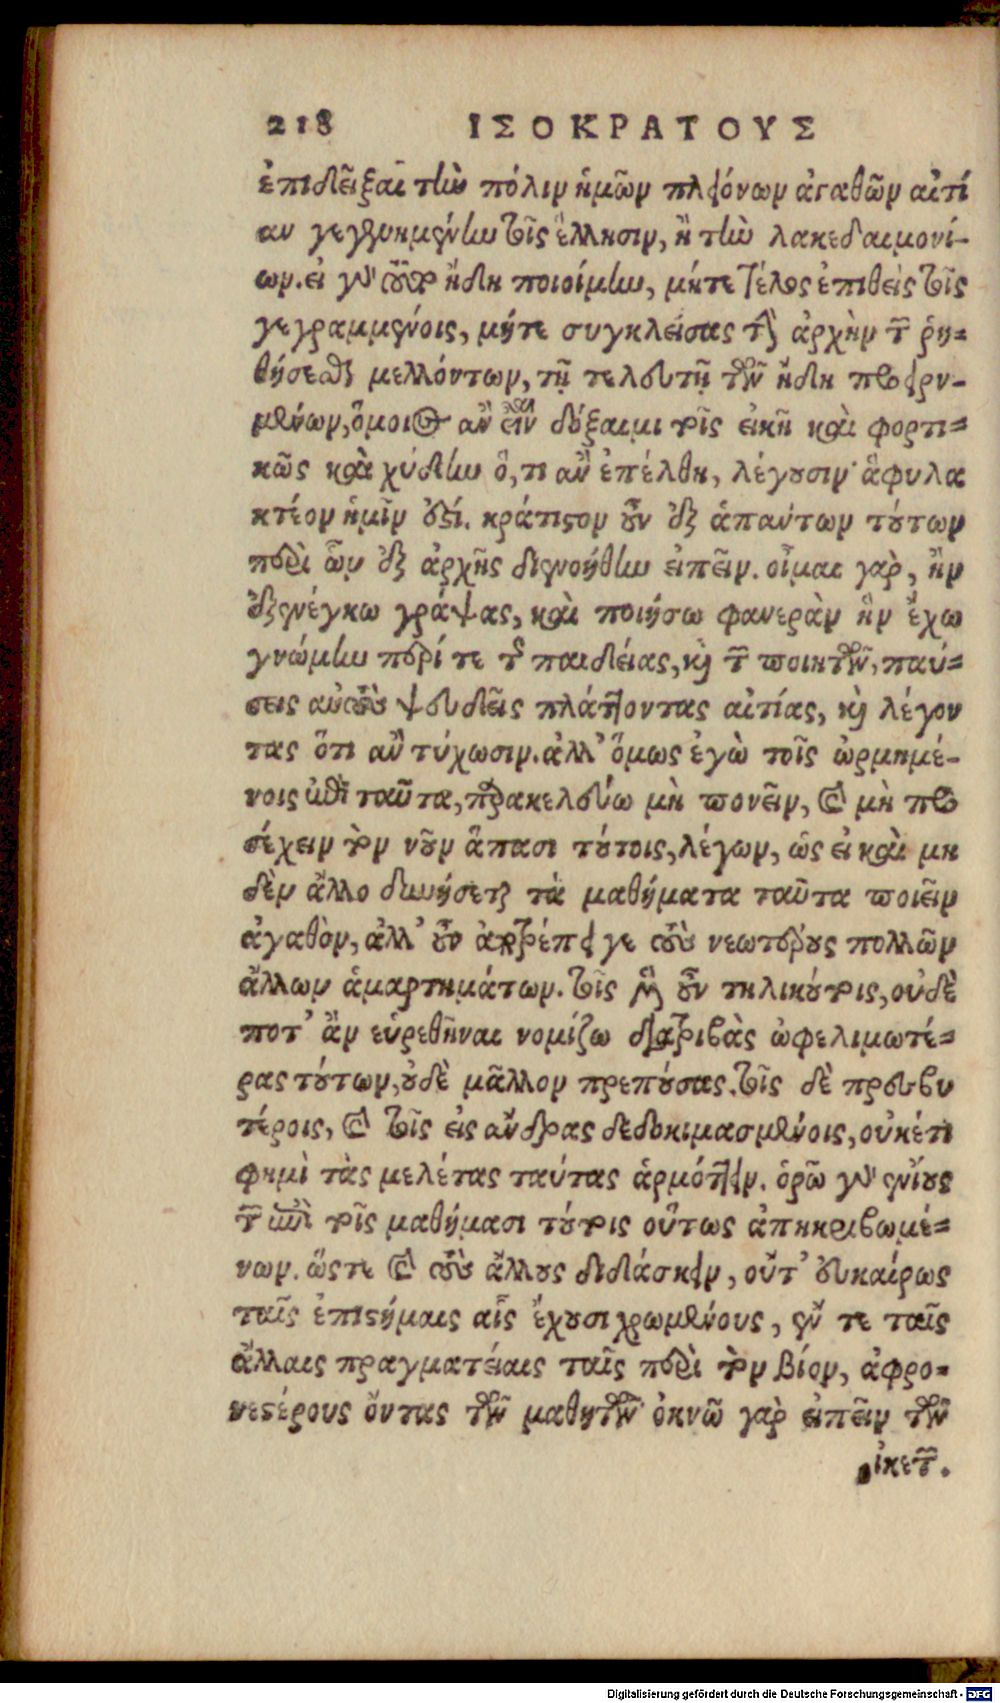 218 ΙΣΟΚΡΑΤΟΥΣ
ἐπιδεῖξαι τὴν πόλιν ἡμῶν πλειόνων ἀγαθῶν αἰτί
αν γεγενημένην τοῖς ἕλλησιν, ἢ τὴν λακεδαιμονί-
ων. εἰ γὰρ ἤδη ποιοίμην, μήτε τέλος ἐπιθεὶς τοῖς
γεγραμμένοις, μήτε συγκλείσας τὴν ἀρχὴν τῶν ῥη-
θήσεσθαι μελλόντων, τῇ τελευτῇ τῶν ἤδη προειρη-
μένων, ὅμοιος ἂν εἶναι δόξαιμι τοῖς εἰκῆ καὶ φορτι-
κῶς καὶ χύδην ὅ, τι ἂν ἐπέλθη, λέγουσιν· ἃ φυλα
κτέον ἡμῖν ἐστί. κράτιστον οὖν ἐξ ἁπάντων τούτων
περὶ ὧν ἐξ ἀρχῆς διενοήθην εἰπεῖν. οἶμαι γὰρ, ἢν
ἐξενέγκω γράψας, καὶ ποιήσω φανερὰν ἣν ἔχω
γνώμην περί τε τῆς παιδείας, καὶ τῶν ποιητῶν, παύ-
σεις αὐτοὺς ψευδεῖς πλάττοντας αἰτίας, καὶ λέγον
τας ὅτι ἂν τύχωσιν. ἀλλ' ὅμως ἐγὼ τοῖς ὡρμημέ-
νοις ἐπὶ ταῦτα, παρακελεύω μὴ πονεῖν, καὶ μὴ προ
σέχειν τὸν νοῦν ἅπασι τούτοις, λέγων, ὡς εἰ καὶ μη
δὲν ἄλλο δυνήσεται τὰ μαθήματα ταῦτα ποιεῖν
ἀγαθὸν, ἀλλ' οὖν ἀποτρέπει γε τοὺς νεωτέρους πολλῶν
ἄλλων ἁμαρτημάτων. τοῖς μὲν οὖν τηλικούτοις, οὐδέ
ποτ' ἂν εὑρεθῆναι νομίζω διατριβὰς ὠφελιμωτέ-
ρας τούτων, οὐδὲ μᾶλλον πρεπούσας. τοῖς δὲ πρεσβυ
τέροις, καὶ τοῖς εἰς ἄνδρας δεδοκιμασμένοις, οὐκέτι
φημὶ τὰς μελέτας ταύτας ἁρμόττειν. ὁρῶ γὰρ ἐνίους
τῶν ἐπὶ τοῖς μαθήμασι τούτοις οὕτως ἀπηκριβωμέ-
νων. ὥστε καὶ τοὺς ἄλλους διδάσκειν, οὔτ' εὐκαίρως
ταῖς ἐπιστήμαις αἷς ἔχουσι χρωμένους, ἔν τε ταῖς
ἄλλαις πραγματείαις ταῖς περὶ τὸν βίον, ἀφρο-
νεστέρους ὄντας τῶν μαθητῶν· ὀκνῶ γὰρ εἰπεῖν τῶν
οἰκετῶν.
Digitalisierung gefördert durch die Deutsche Forschungsgemeinschaft - DFG